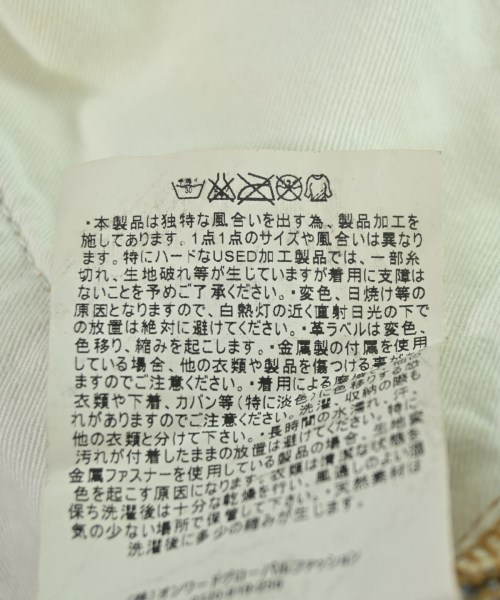 ・本製品は独特な風合いを出す為、製品加工を
施してあります。1点1点のサイズや風合いは異なり
ます。特にハードなUSED加工製品では、一部糸
切れ、生地破れ等が生じていますが着用に支障は
ないことを予めご了承ください。・変色、日焼け等の
原因となりますので、白熱灯の近く直射日光の下で
の放置は絶対に避けてください。・革ラベルは変色、
色移り、縮みを起こします。・金属製の付属を使用
している場合、他の衣類や製品を傷つける事が
ますのでご注意ください。・着用による摩擦
衣類や下着、カバン等(特に淡色)に色移りする恐
れがありますのでご注意ください。洗濯、収納の際も
他の衣類と分けて下さい。・長時間の水濡れ、汗、
汚れが付着したままの放置は避けてください。特に
金属ファスナーを使用している製品の場合、生地変
色を起こす原因になります。衣類は清潔な状態を
保ち洗濯後は十分な乾燥を行い、風通しのよい湿
気の少ない場所で保管して下さい。・天然素材は
洗濯後に多少の縮みが生じます。
(株)オンワードグローバルファッション